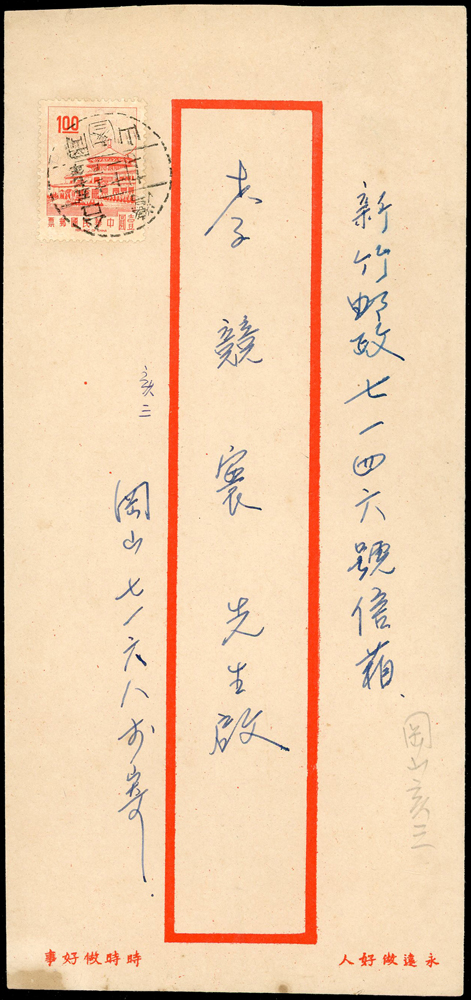 新竹邮政七一四六號信箱
岡山亥三
李競寰先生啟
亥三
岡山七一六八寄
1.00
壹圓
中華民國郵票
永遠做好人
時時做好事